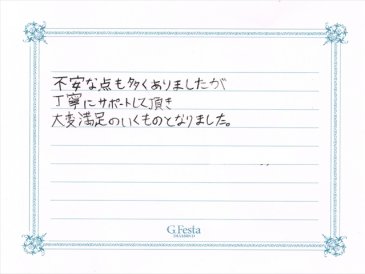 不安な点も多くありましたが
丁寧にサポートして頂き
大変満足のいくものとなりました。
G.Festa